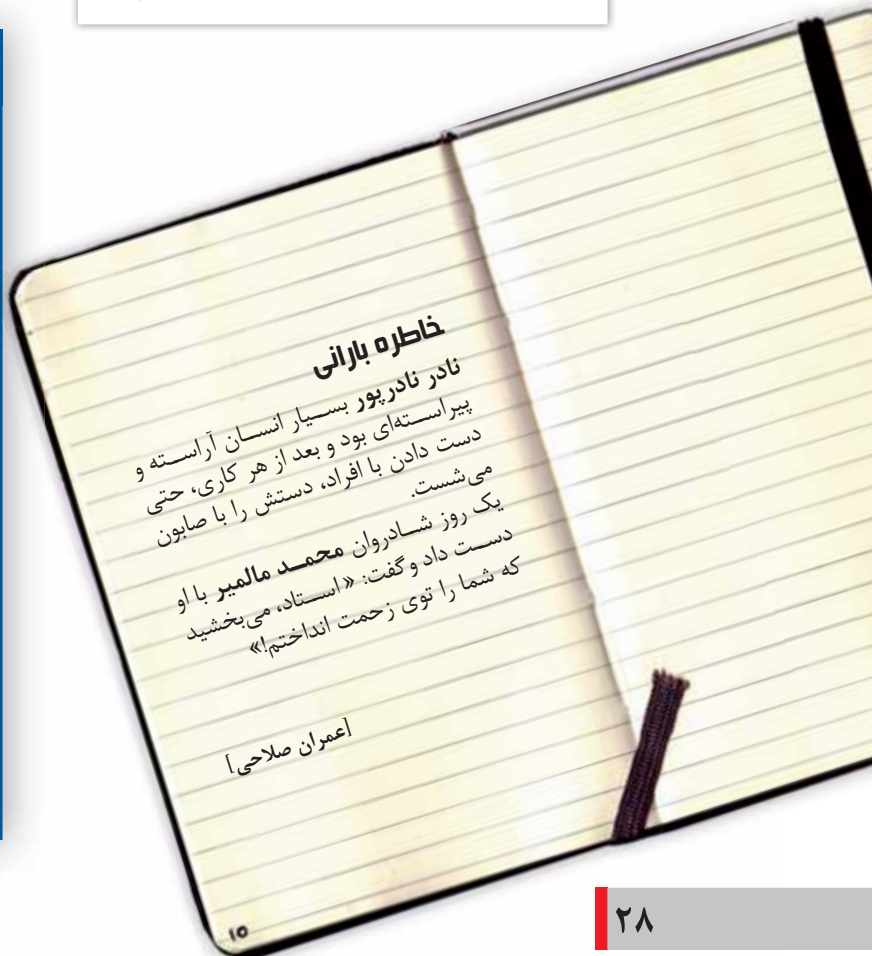 خاطره بارانی
نادر نادرپور بسیار انسان آراسته و
پیراسته‌ای بود و بعد از هر کاری، حتی
دست دادن با افراد، دستش را با صابون
می‌شست.
یک روز شادروان محمد مالمیر با او
دست داد و گفت: «استاد، می‌بخشید
که شما را توی زحمت انداختم!»
[عمران صلاحی]
۱۵
۲۸